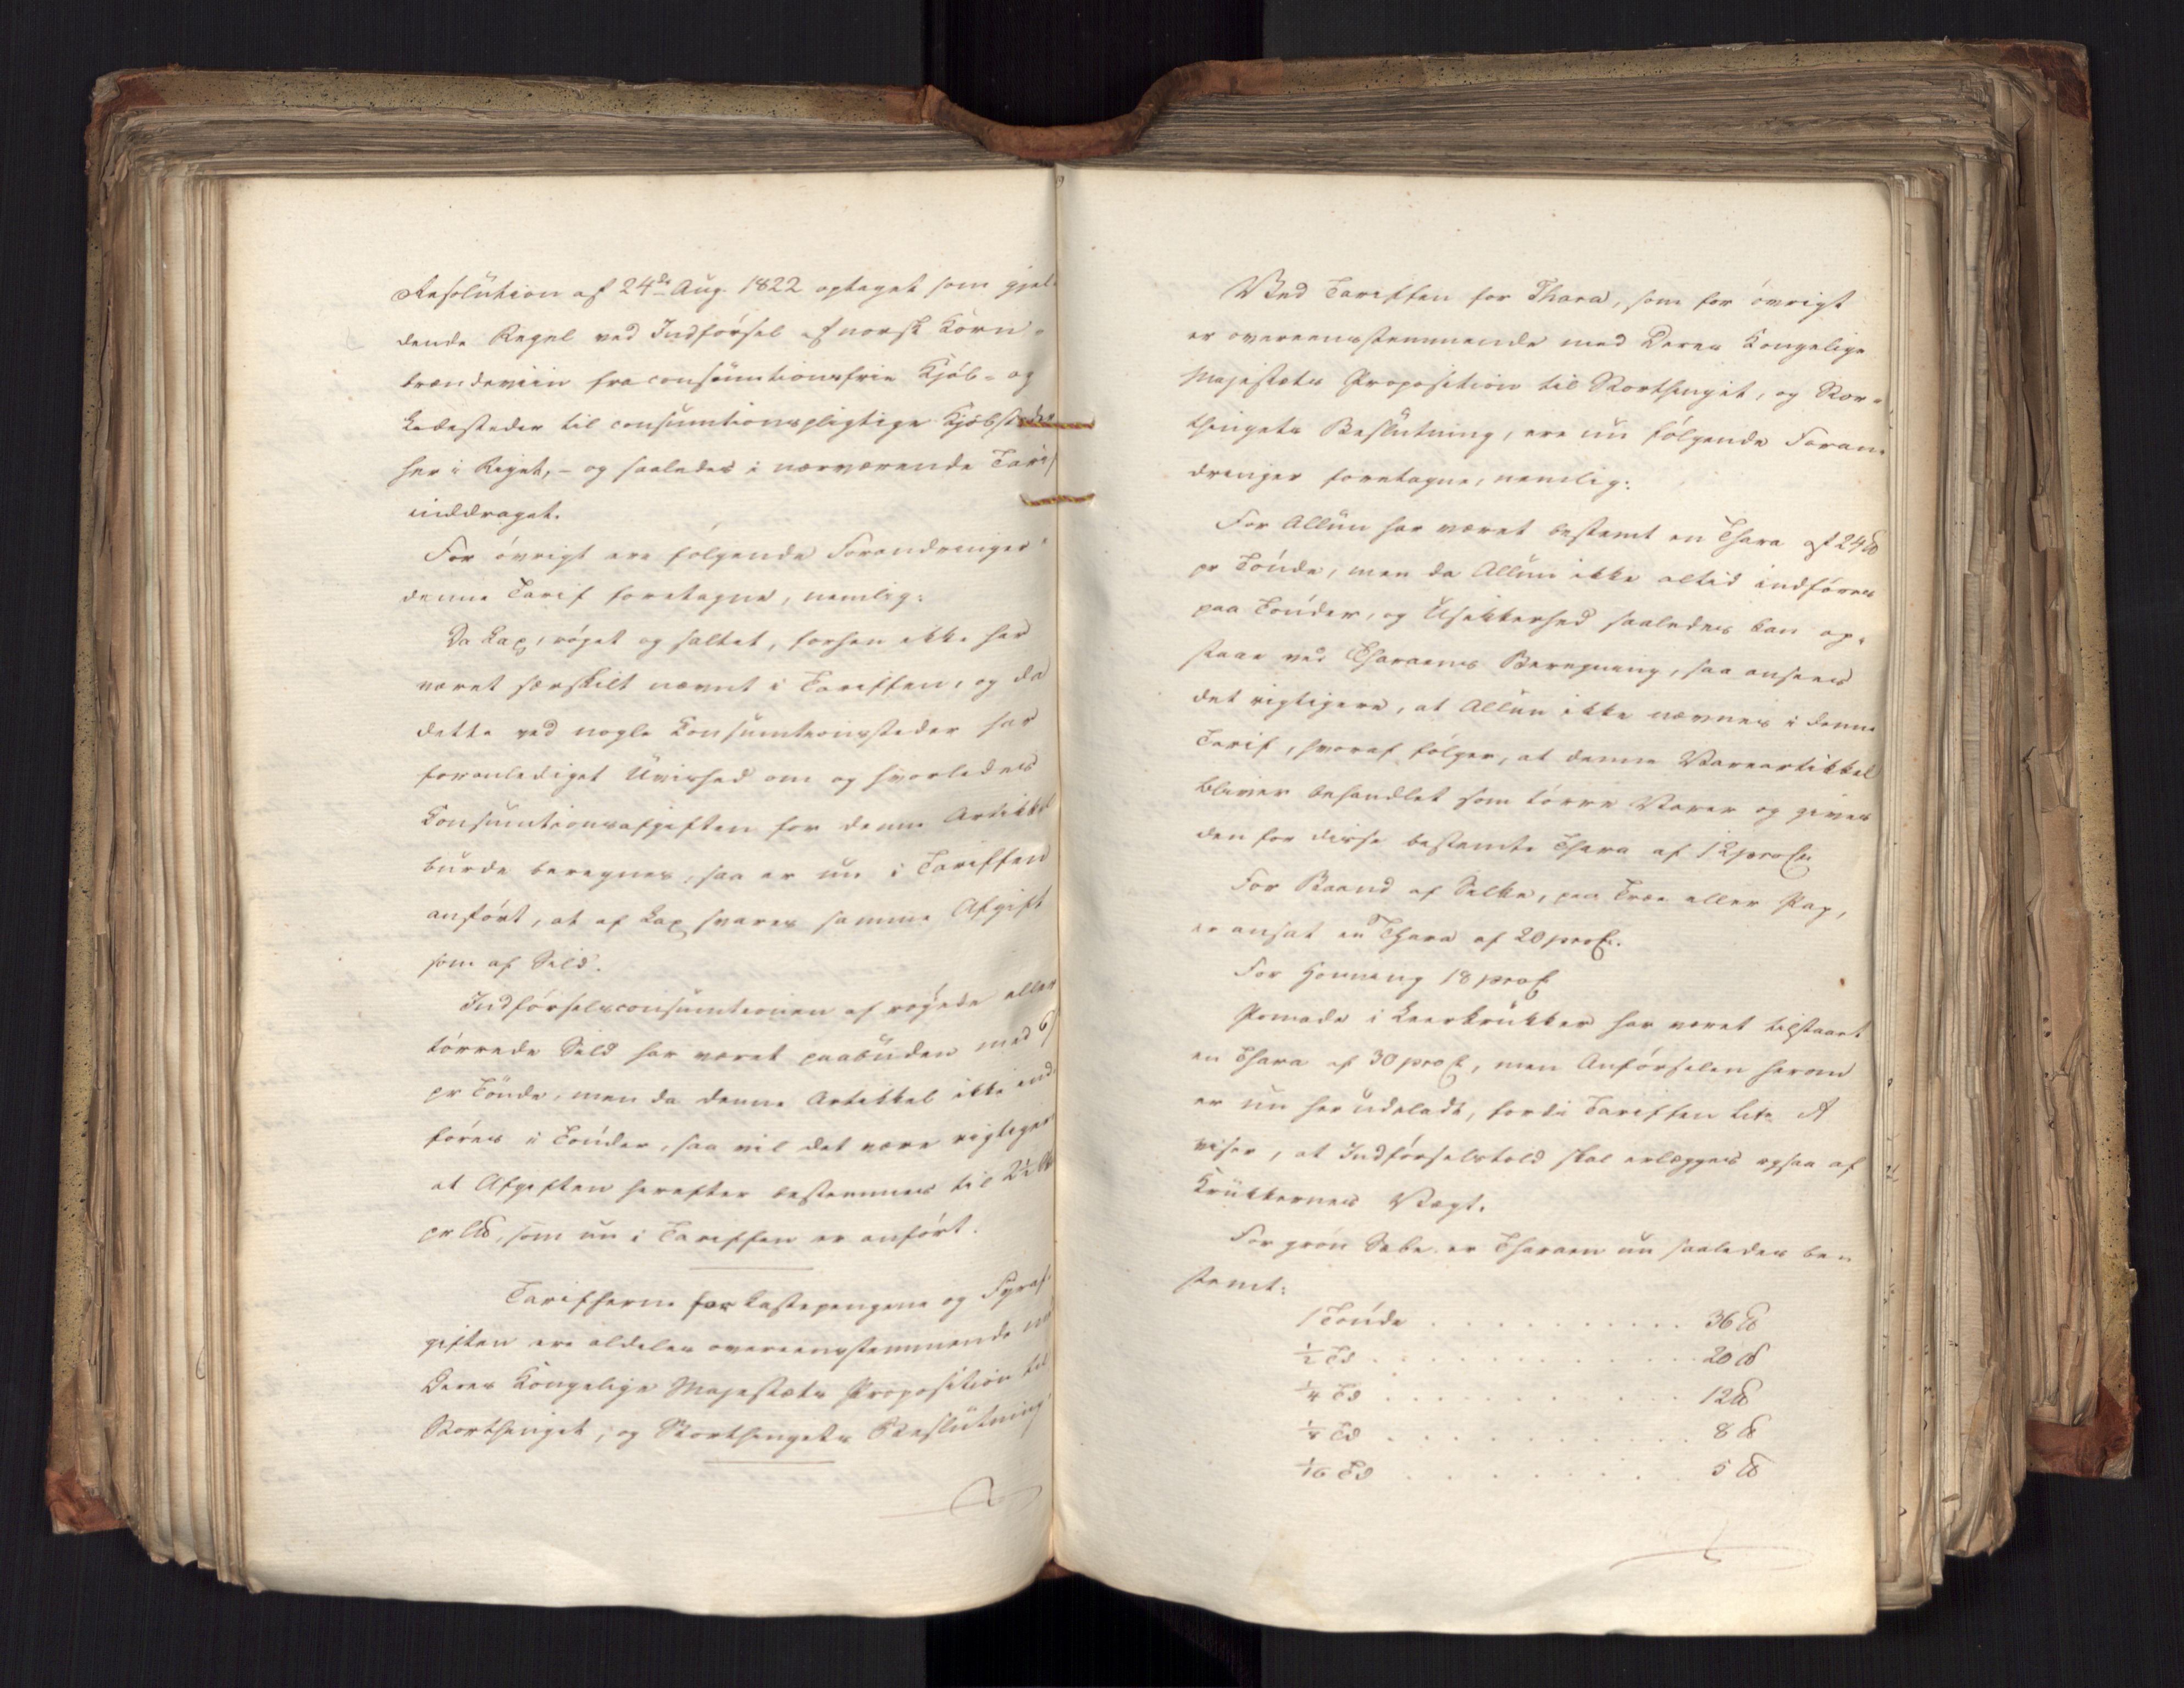 Resolution af 24de Aug. 1822 optaget som gjel-
dende Regel ved Indførsel af norsk Korn-
brændeviin fra consumtionsfrie Kjøb- og
Ladesteder til consumtionspligtige Kjøbsteder
her i Riget, - og saaledes i nærværende Tarif
inddraget.
For øvrigt ere følgende Forandringer i
denne Tarif foretagne, nemlig:
Da Lax, røget og saltet, forhen ikke har
været særskilt nævnt i Tariffen, og da
dette ved nogle Consumtionssteder har
foranlediget Uvished om og hvorledes
Consumtionsafgiften for denne Artikkel
burde beregnes, saa er nu i Tariffen
anført, at af Lax svares samme Afgift
som af Sild.
Indførselsconsumtionen af røgede eller
tørrede Sild har været paabuden med 6
pr Tønde, men da denne Artikkel ikke ind-
føres i Tønder, saa vil det være rigtigere
at Afgiften herefter bestemmes til 2½
pr L℔, som nu i Tariffen er anført.
Tarifferne for Lastepengene og Fyraf-
giften ere aldeles overeensstemmende med
Deres Kongelige Majestæts Proposition til
Storthinget, og Storthingets Beslutning
Ved Tariffen for Thara, som for øvrigt
er overeensstemmende med Deres Kongelige
Majestæts Proposition til Storthinget, og Stor-
thingets Beslutning, ere nu følgende Foran-
dringer foretagne, nemlig:
For Allun har været bestemt en Thara af 24 ℔
pr Tønde, men da Allun ikke altid indføres
paa Tønder, og Usikkerhed saaledes kan op-
staae ved Tharaens Beregning, saa ansees
det rigtigere, at Allun ikke nævnes i denne
Tarif, hvoraf følger, at denne Vareartikkel
bliver behandlet som tørre Varer og gives
den for disse bestemte Thara af 12 pro Ct.
For Baand af Silke, paa Træe eller Pap,
er ansat en Thara af 20 pro Ct.
For Honning 18 pro Ct
Pomade i Leerkrukker har været tilstaaet
en Thara af 30 pro Ct, men Anførselen herom
er nu her udeladt, fordi Tariffen Litr. A
viser, at Indførselstold skal erlægges ogsaa af
Krukkernes Vægt.
For grøn Sæbe er Tharaen nu saaledes be-
stemt:
1 Tønde . . . . . . . . . . 36 ℔
½ Td . . . . . . . . . . . 20 ℔
¼ Td . . . . . . . . . . 12 ℔
⅛ Td . . . . . . . . . . 8 ℔
1/16 Td . . . . . . . . . 5 ℔